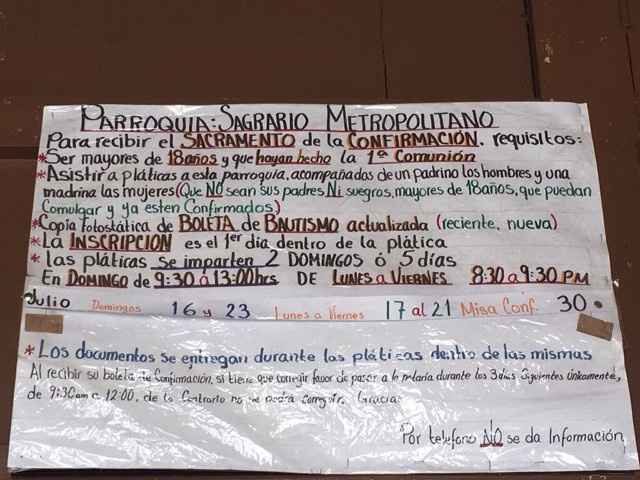 PARROQUIA: SAGRARIO METROPOLITANO
Para recibir el SACRAMENTO de la CONFIRMACIÓN. requisitos:
*Ser mayores de 18 años y que hayan hecho la 1ª Comunión
*Asistir a pláticas a esta parroquia, acompañados de un padrino los hombres y una
madrina las mujeres (Que NO sean sus padres Ni suegros, mayores de 18 años, que puedan
Comulgar y ya esten Confirmados)
*Copia fotostática de BOLETA de BAUTISMO actualizada (reciente, nueva)
*La INSCRIPCION es el 1er dia dentro de la plática
* las pláticas se imparten 2 DOMINGOS ó 5 días
En DOMINGO de 9:30 a 13:00hrs DE LUNES a VIERNES 8:30 a 9:30 PM
Julio Domingos 16 y 23 Lunes a Viernes 17 al 21 Misa Conf. 30
* Los documentos se entregan durante las pláticas dentro de las mismas
Al recibir su boleta de Confirmación, si tiene que corregir favor de pasar a la notaría durante los 3 días siguientes únicamente,
de 9:30am a 12:00, de lo contrario no se podrá corregir. Gracias
Por telefono NO se da Información